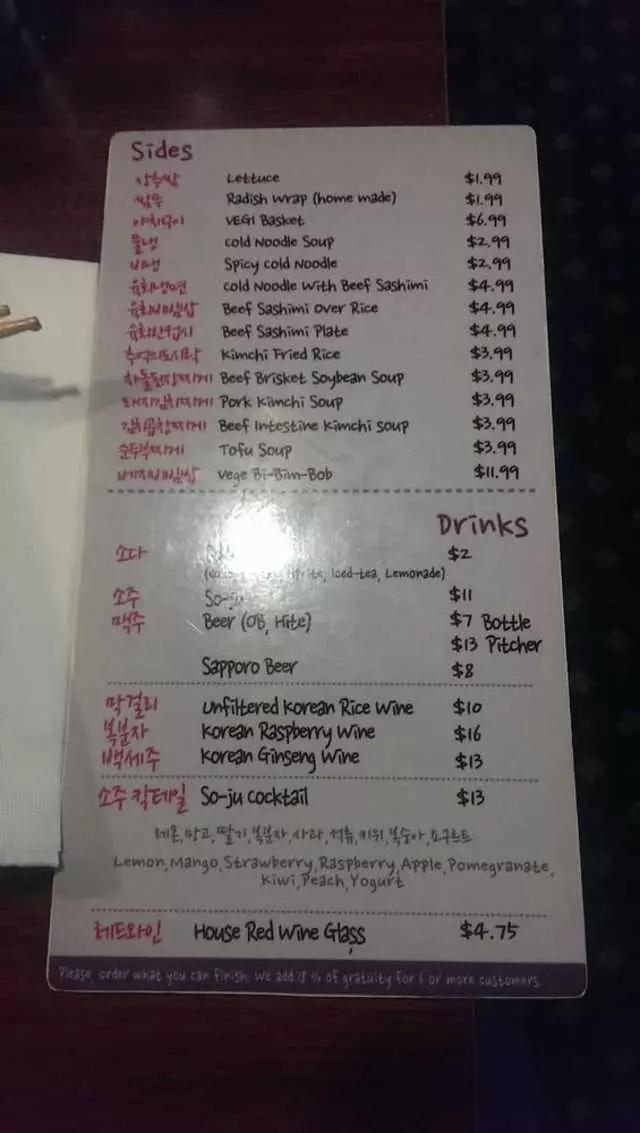 Sides
상추쌈 Lettuce $1.99
쌈무 Radish wrap (home made) $1.99
야채구이 VEGI Basket $6.99
물냉 cold Noodle Soup $2.99
비냉 Spicy cold Noodle $2.99
육회냉면 cold Noodle With Beef Sashimi $4.99
육회비빔밥 Beef Sashimi Over Rice $4.99
육회한접시 Beef Sashimi Plate $4.99
추억의도시락 Kimchi Fried Rice $3.99
차돌된장찌개 Beef Brisket Soybean Soup $3.99
돼지김치찌개 Pork Kimchi Soup $3.99
김치곱창찌개 Beef Intestine Kimchi soup $3.99
순두부찌개 Tofu Soup $3.99
베지비빔밥 vege Bi-Bim-Bob $11.99
Drinks
소다 $2
Iced-tea, Lemonade)
소주 So-ju $11
맥주 Beer (OB, Hite) $7 Bottle
$13 Pitcher
Sapporo Beer $8
막걸리 Unfiltered Korean Rice Wine $10
복분자 Korean Raspberry Wine $16
백세주 Korean Ginseng Wine $13
소주 칵테일 So-ju cocktail $13
레몬,망고,딸기,복분자,사과,석류,키위,복숭아,요구르트
Lemon,Mango,Strawberry,Raspberry,Apple,Pomegranate,
Kiwi,Peach,Yogurt
레드와인 House Red Wine Glass $4.75
Please, order what you can finish. We add % of gratuity for 6 or more customers.